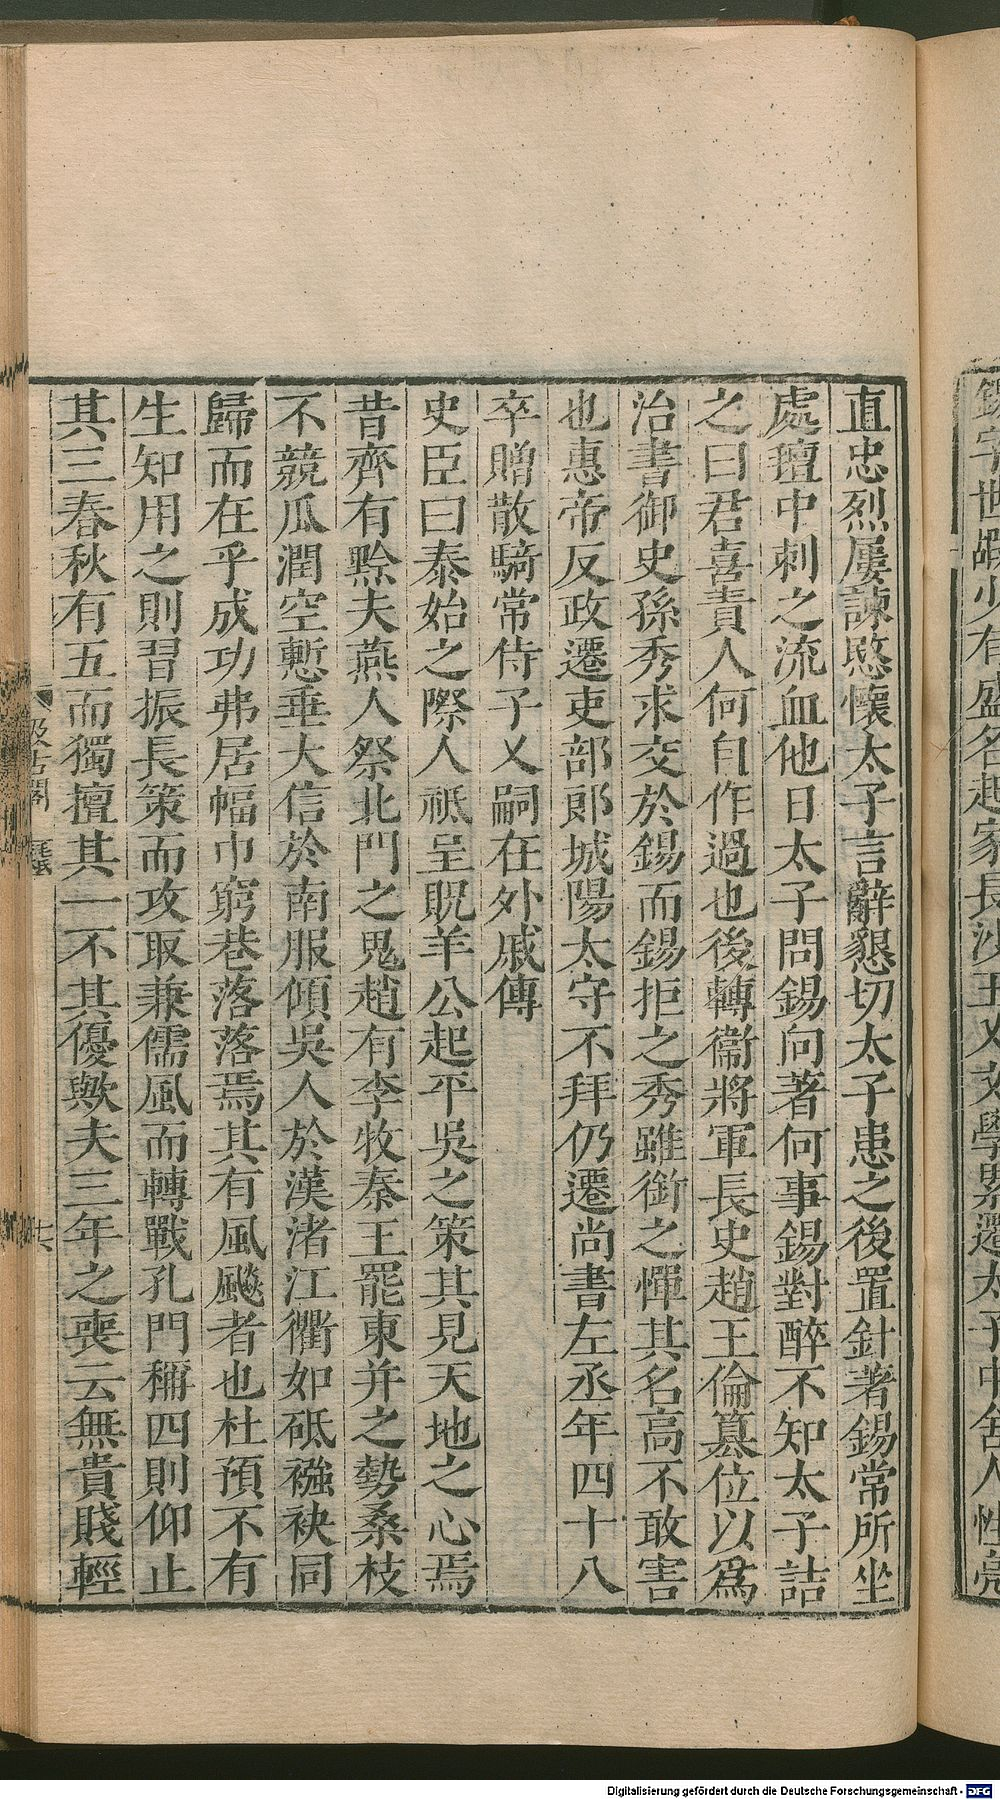 直忠烈屢諫愍懷太子言辭懇切太子患之後置針著錫常所坐
處氊中刺之流血他日太子問錫向著何事錫對醉不知太子詰
之曰君喜責人何自作過也後轉衞將軍長史趙王倫篡位以爲
治書御史孫秀求交於錫而錫拒之秀雖銜之憚其名高不敢害
也惠帝反政遷吏部郞城陽太守不拜仍遷尚書左丞年四十八
卒贈散騎常侍子乂嗣在外戚傳
史臣曰泰始之際人祗呈貺羊公起平吳之策其見天地之心焉
昔齊有黔夫燕人祭北門之鬼趙有李牧秦王罷東并之勢桑枝
不競瓜潤空慙垂大信於南服傾吳人於漢渚江衢如砥襁袂同
歸而在乎成功弗居幅巾窮巷落落焉其有風飈者也杜預不有
生知用之則習振長策而攻取兼儒風而轉戰孔門稱四則仰止
其三春秋有五而獨擅其一不其優歟夫三年之喪云無貴賤輕
汲古閣
Digitalisierung gefördert durch die Deutsche Forschungsgemeinschaft - DFG